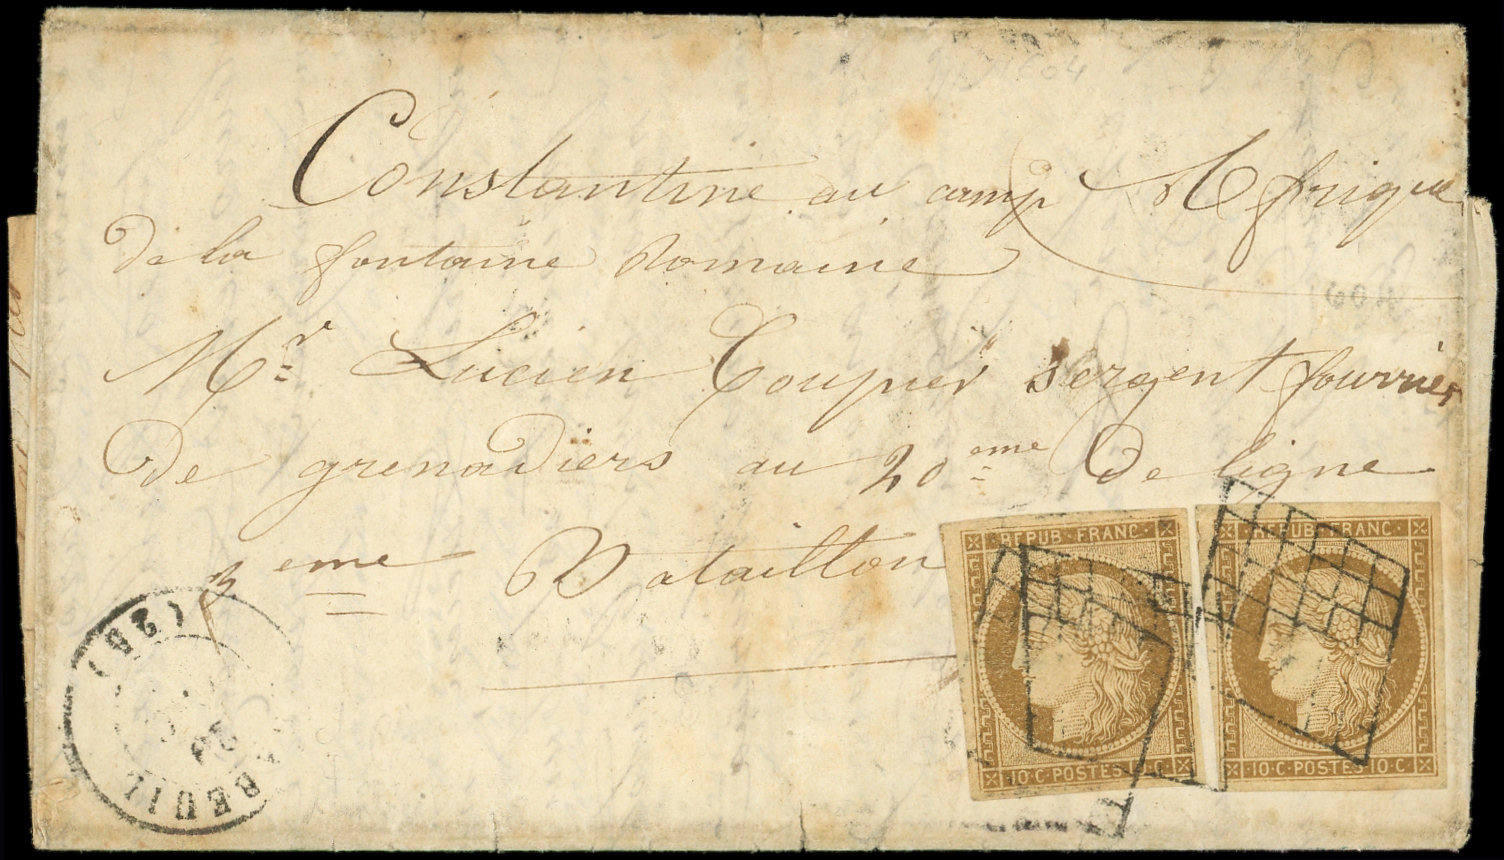 Constantine au camp Afrique
de la fontaine Romaine
Mr Lucien Coupier sergent fourrier
de grenadiers au 20eme De ligne
3eme Bataillon
REPUB·FRANC·
10·C·POSTES·10·C·
REPUB·FRANC·
10·C·POSTES·10·C·
REUIL